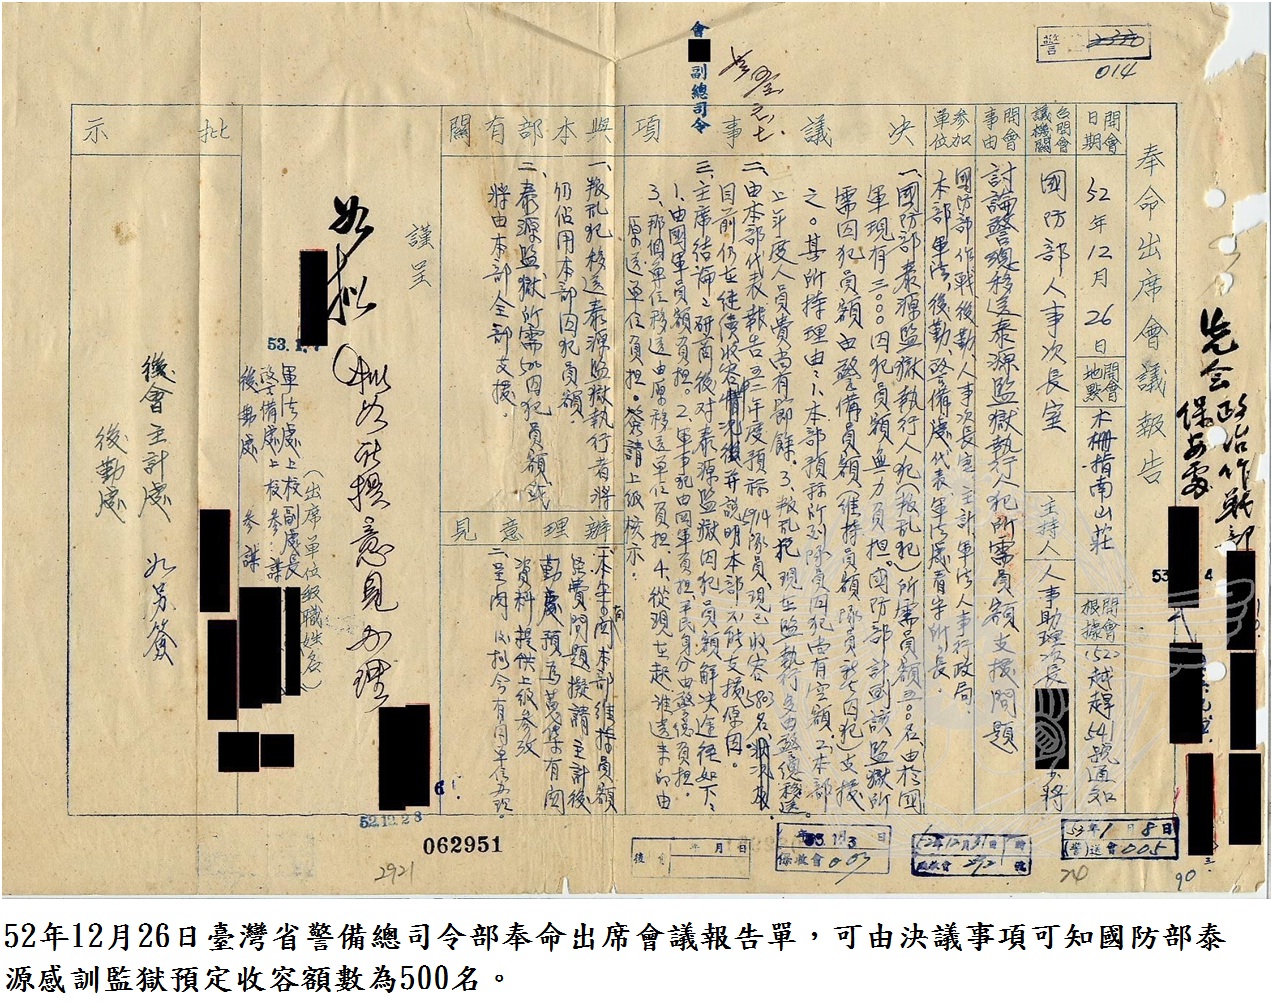 奉命出席會議報告
開會日期
52年12月26日
開會地點
木柵指南山莊
開會根據
(52)越趕541號通知
召開會議機關
國防部人事次長室
主持人
人事助理次長
少將
開會事由
討論警總移送泰源監獄執行人犯所需員額支援問題
參加單位
國防部作戰、後勤、人事次長室、主計、軍法、人事行政局、
本部軍法、後勤、警備處代表
決議事項
一、國防部泰源監獄執行人犯(叛亂犯)所需員額五〇〇名由於國
軍現有三〇〇〇囚犯員額無力負担。國防部計劃該監獄所
需囚犯員額由警備員額(維持員額隊員
囚犯)支援
之。其所持理由:1、本部預算所列隊員囚犯尚有空額。2、本部
上年度人員費尚有節餘。3、叛亂犯現在監執行多由警總移送。
二、由本部代表報告五三年度預算
隊員現已收容
名
目前仍在繼續收容情況後並說明本部不能支援原因。
三、主席結論:研商後对泰源監獄囚犯員額解決途徑如下:
1.由國軍員額負担。2.軍事犯由國軍負担平民身分由警總負担。
3.那個單位移送由原移送單位負担。4.從現在起誰送來的由
原送單位負担。簽請上級核示。
與本部有關
一、叛亂犯移送泰源監獄執行者將
仍佔用本部囚犯員額。
二、泰源監獄所需如囚犯員額或
將由本部全部支援。
辦理意見
一、本年
有關本部維持員額
經費問題擬請主計後
勤處預為蒐集有關
資料提供上級參改
二、
謹呈
批示
如擬
擬如所擬意見办理
53.1.7
(出席單位級職姓名)
軍法處上校副處長
警備處上校參謀
後勤處
參謀
後會主計處
後勤處
如另簽
會
副總司令
先會政治作戰部
保安處
警
014
52.12.28
062951
2921
後
年 月 日
年 月 日
53.1.3
保收會003
52年12月31日
53年1月8日
(警)送會005
90
52年12月26日臺灣省警備總司令部奉命出席會議報告單，可由決議事項可知國防部泰
源感訓監獄預定收容額數為500名。